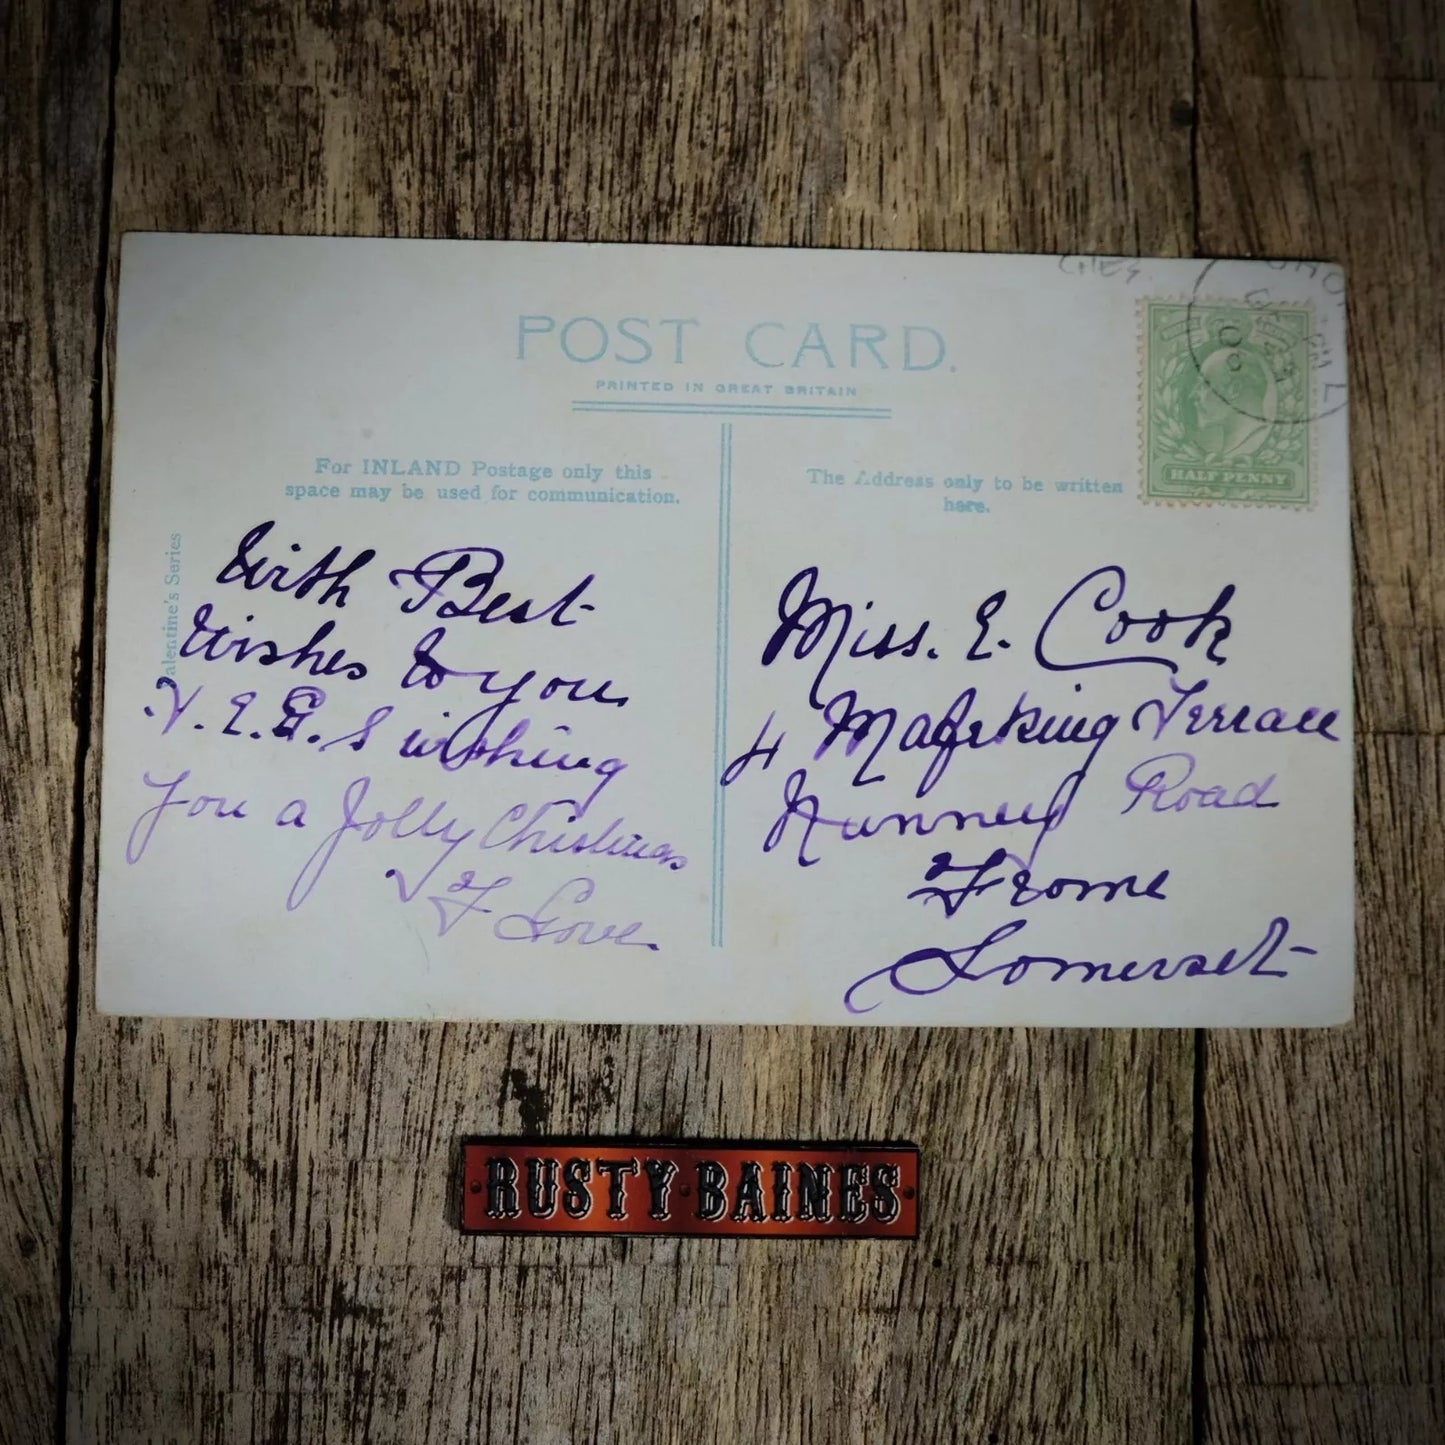 CHES
POST CARD.
PRINTED IN GREAT BRITAIN
For INLAND Postage only this
space may be used for communication.
The Address only to be written
here.
HALF PENNY
Valentine's Series
With Best
Wishes to you
wishing
You a Jolly Christmas
F Love.
Miss. E. Cook
4 Mafeking Terrace
Nunney Road
Frome
Somerset
RUSTY BAINES